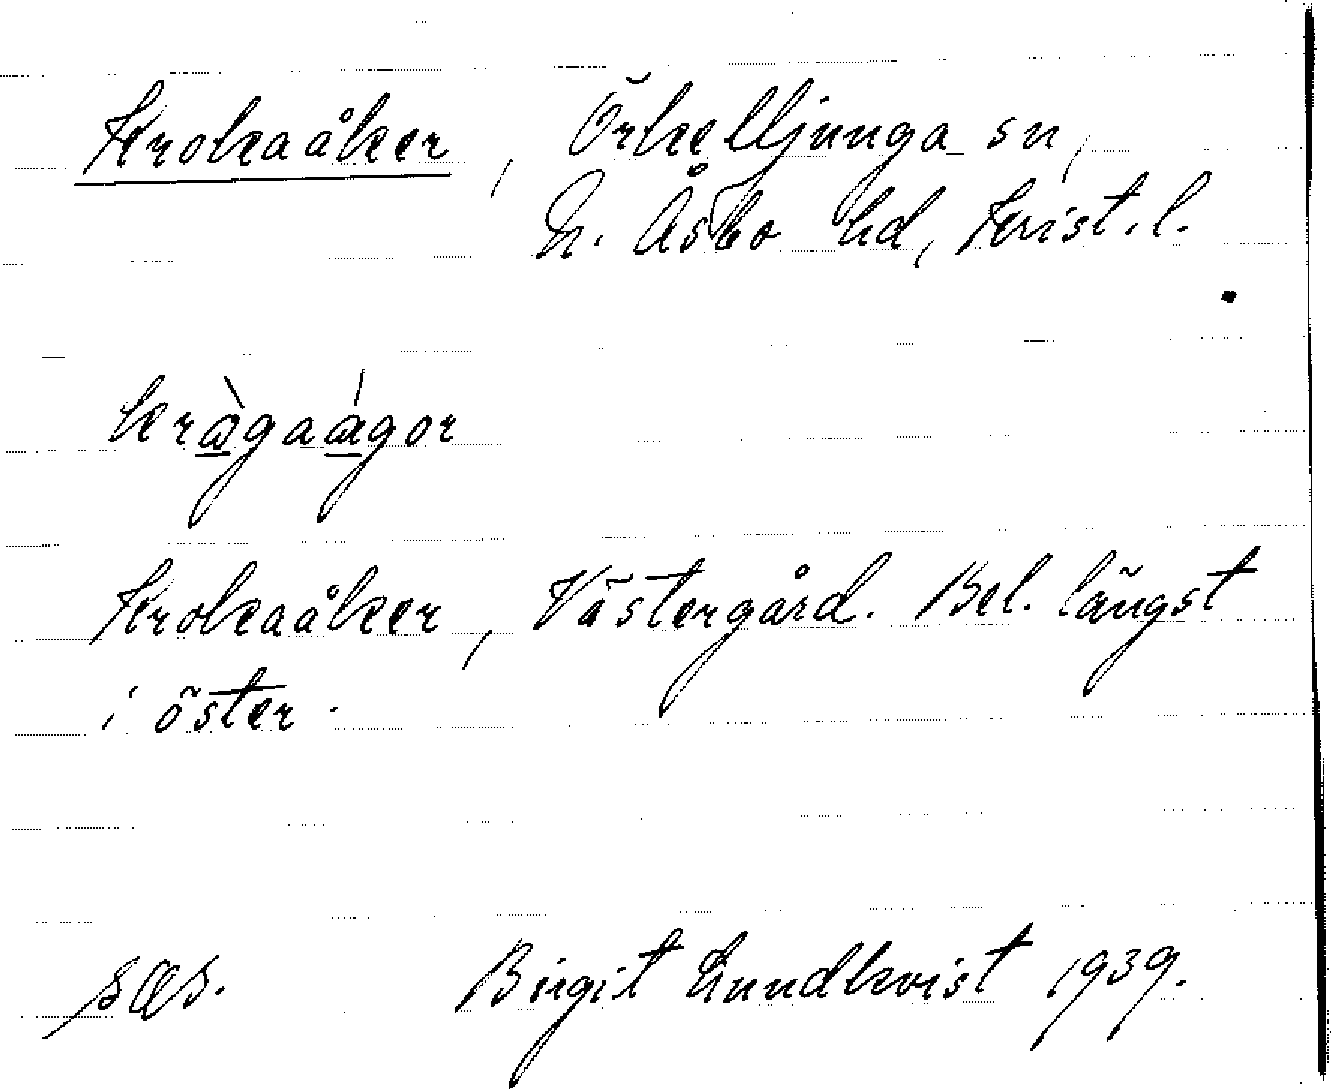 Krokaåker, Örkelljunga sn,
N. Åsbo hd, Krist. l.
kràgaágor
Krokaåker, Västergård. Bel. längst
i öster.
Birgit Lundkvist 1939.